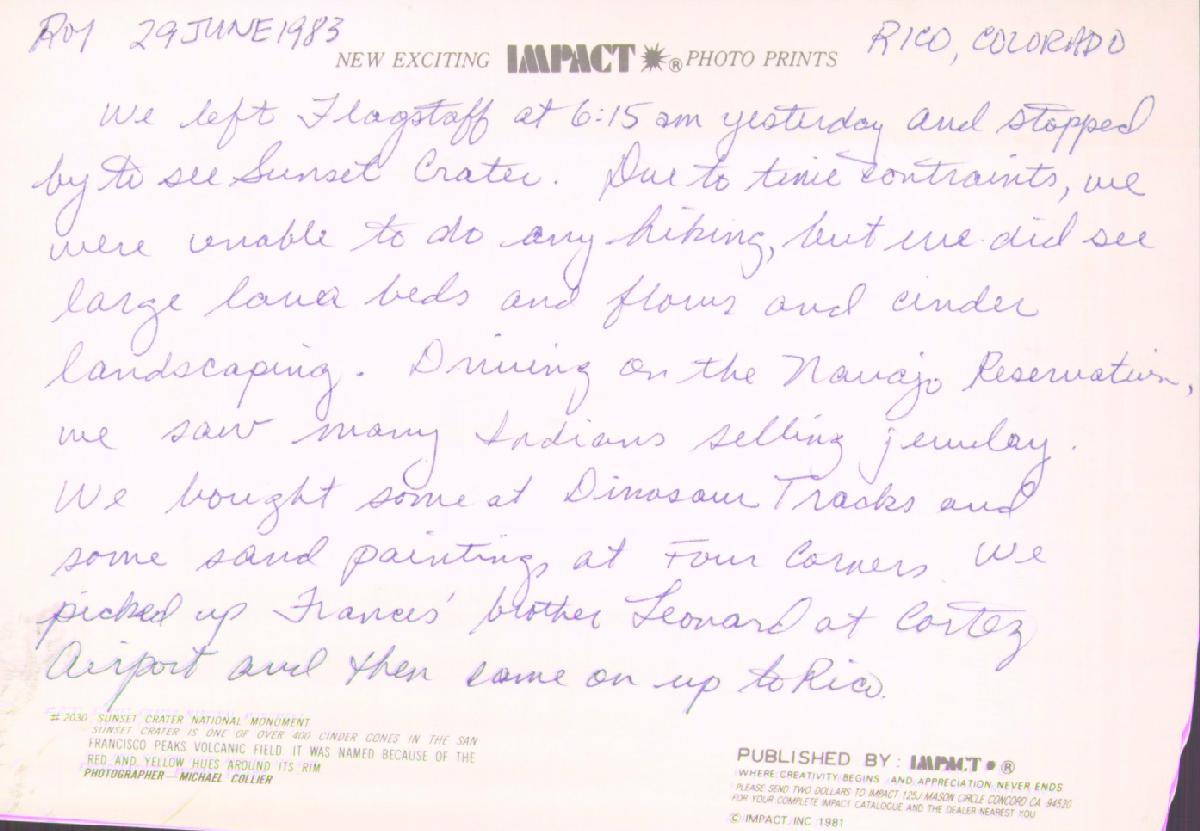 Roy 29 JUNE 1983
RICO, COLORADO
NEW EXCITING IMPACT ® PHOTO PRINTS
We left Flagstaff at 6:15 am yesterday and stopped
by to see Sunset Crater. Due to time contraints, we
were unable to do any hiking, but we did see
large lava beds and flows and cinder
landscaping. Driving on the Navajo Reservation,
we saw many Indians selling jewelay.
We bought some at Dinosaur Tracks and
some sand paintings at Four Corners. We
picked up Frances' brother Leonard at Cortez
Airport and then came on up to Rico.
# 2030 SUNSET CRATER NATIONAL MONUMENT
SUNSET CRATER IS ONE OF OVER 400 CINDER CONES IN THE SAN
FRANCISCO PEAKS VOLCANIC FIELD. IT WAS NAMED BECAUSE OF THE
RED AND YELLOW HUES AROUND ITS RIM
PHOTOGRAPHER — MICHAEL COLLIER
PUBLISHED BY: IMPACT ®
WHERE CREATIVITY BEGINS AND APPRECIATION NEVER ENDS
PLEASE SEND TWO DOLLARS TO IMPACT 125J MASON CIRCLE CONCORD CA 94520
FOR YOUR COMPLETE IMPACT CATALOGUE AND THE DEALER NEAREST YOU
© IMPACT, INC 1981